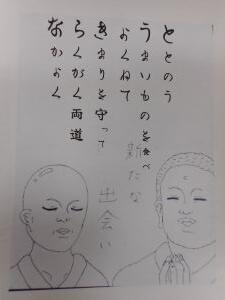 ととのう
うまいものを食べ
よくねて
きまりを守って
らくがく両道
なかよく
新たな
出会い